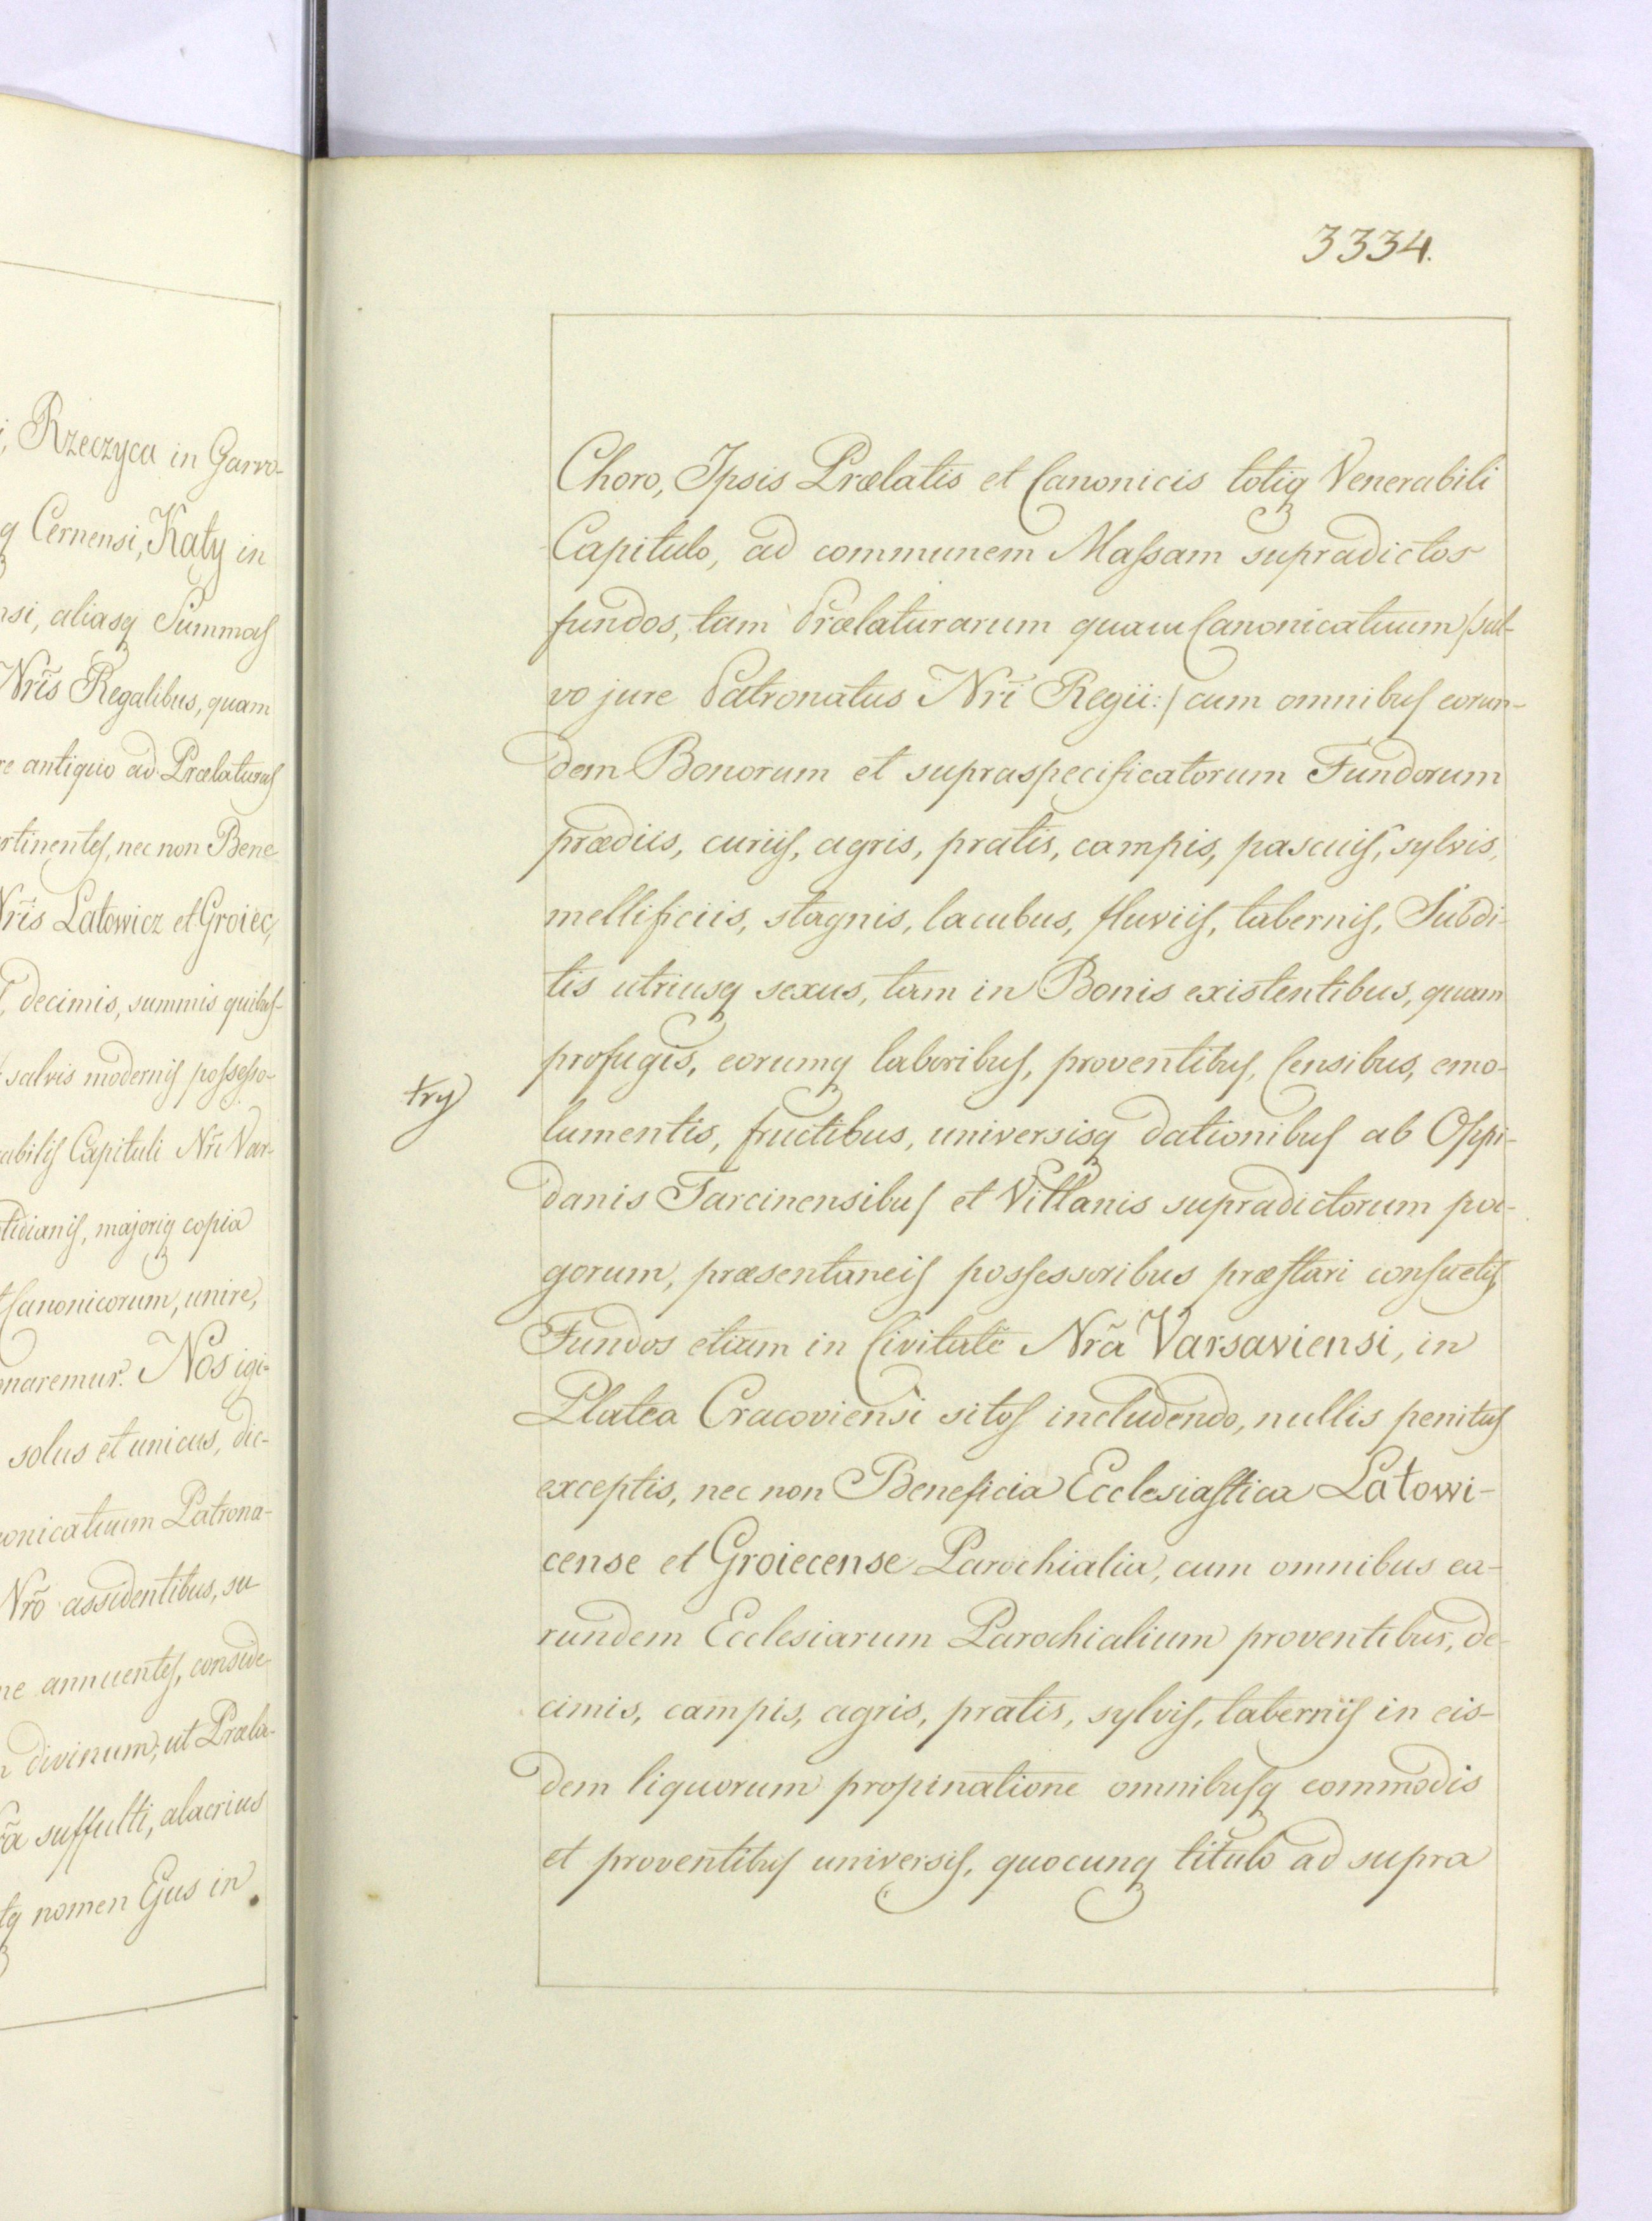 i, Rzeczyca in Garvo-
q Cernensi, Katy in
nsi, aliasq Summas
Nris Regalibus, quam
re antiquo ad Prælaturas
rtinentes, nec non Bene-
Nris Latowicz et Groiec,
, decimis, summis quibus-
salvis modernis possesso-
abilis Capituli Nri Var-
tidianis, majoriq copia
Canonicorum, unire,
naremur. Nos igi-
solus et unicus, dic-
onicatuum Patrona-
Nrõ assidentibus, su
ne annuentes, conside-
divinum, ut Præla-
rã suffulti, alacrius
tq nomen Ejus in
3334.
Choro, Ipsis Prælatis et Canonicis totiq Venerabili
Capitulo, ad communem Massam supradictos
fundos, tam Prælaturarum quam Canonicatuum /sal-
vo jure Patronatus Nri Regii:/ cum omnibus eorun-
dem Bonorum et supraspecificatorum Fundorum
prædiis, curiis, agris, pratis, campis, pascuis, sylvis,
mellificiis, stagnis, lacubus, fluviis, tabernis, Subdi-
tis utriusq sexus, tam in Bonis existentibus, quam
profugis, eorumq laboribus, proventibus, Censibus, emo-
try
lumentis, fructibus, universisq dationibus ab Oppi-
danis Tarcinensibus et Villanis supradictorum pa-
gorum, præsentaneis possessoribus præstari consuetis,
Fundos etiam in Civitate Nrã Varsaviensi, in
Platea Cracoviensi sitos includendo, nullis penitus
exceptis, nec non Beneficia Ecclesiastica Latowi-
cense et Groiecense Parochialia, cum omnibus ea-
rundem Ecclesiarum Parochialium proventibus, de-
cimis, campis, agris, pratis, sylvis, taberniis in eis-
dem liquorum propinatione omnibusq commodis
et proventibus universis, quocunq titulo ad supra